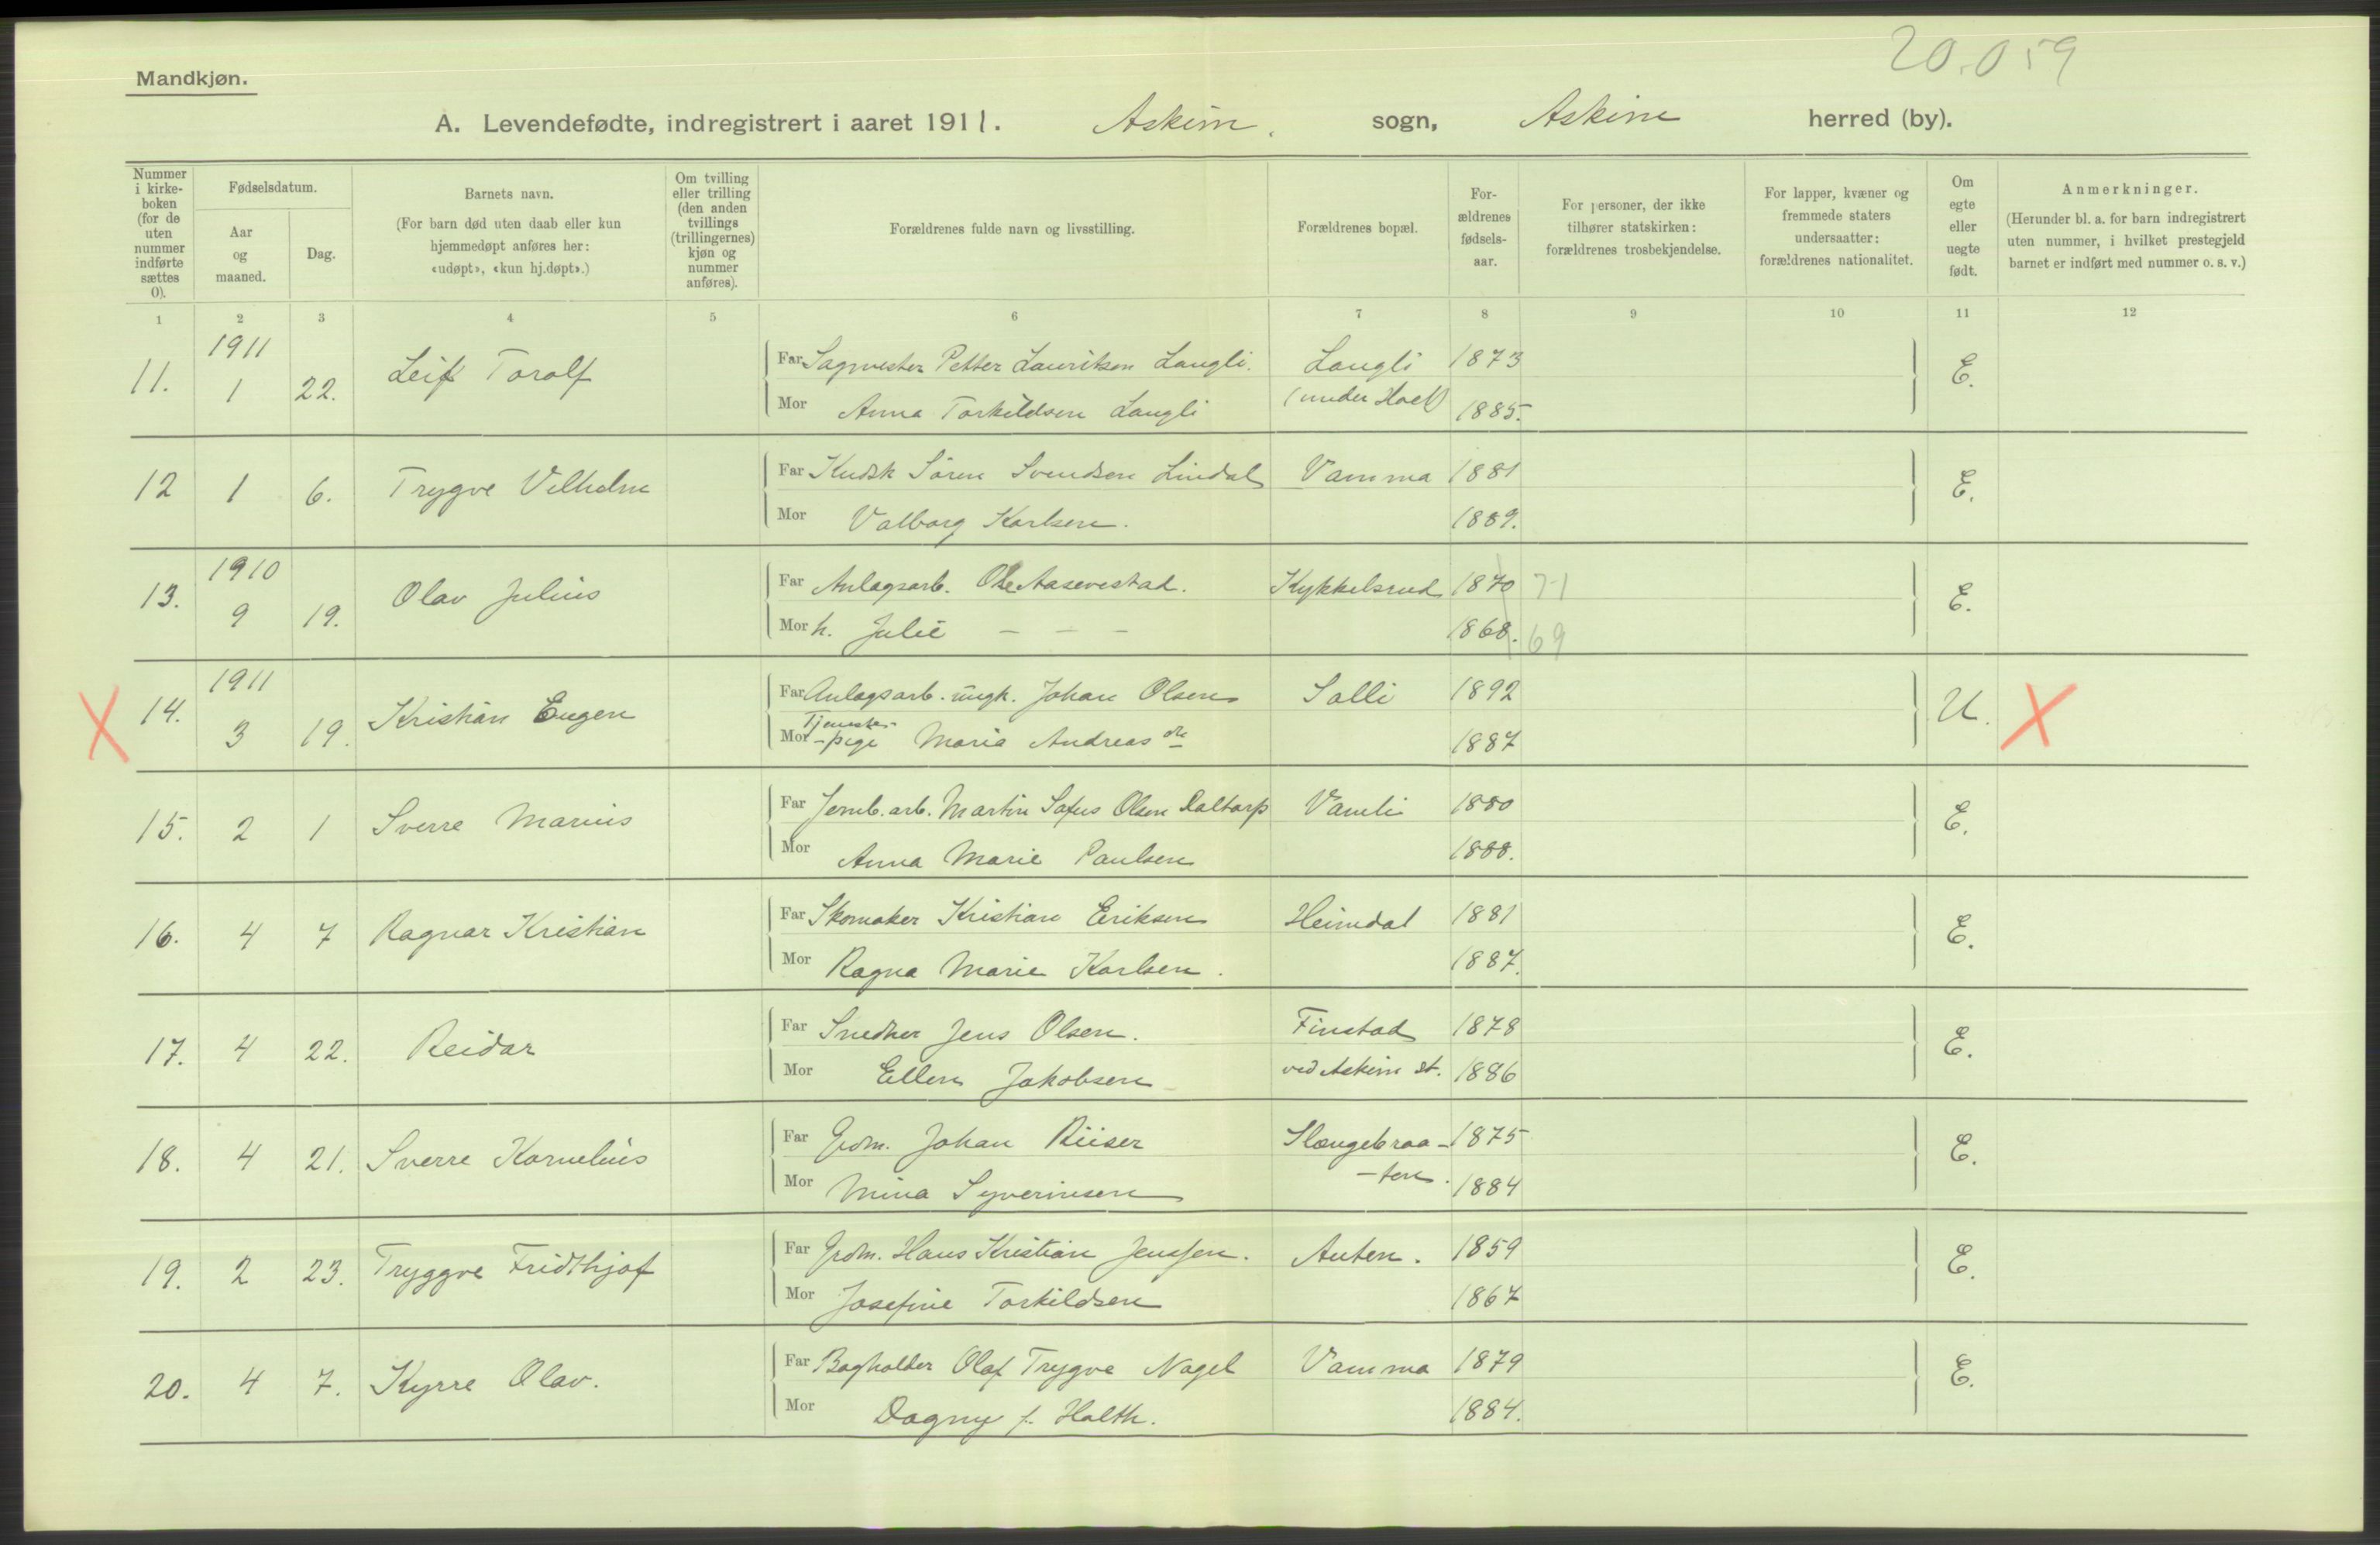 20.059
Mandkjøn.
A. Levendefødte, indregistrert i aaret 1911. Askim. sogn, Askim herred (by).
Nummer i kirke-boken (for de uten nummer indførte sættes 0).
Fødselsdatum.
Aar og maaned.
Dag.
Barnets navn.
(For barn død uten daab eller kun hjemmedøpt anføres her: «udøpt», «kun hj.døpt».)
Om tvilling eller trilling (den anden tvillings (trillingernes) kjøn og nummer anføres).
Forældrenes fulde navn og livsstilling.
Forældrenes bopæl.
For-ældrenes fødsels-aar.
For personer, der ikke tilhører statskirken: forældrenes trosbekjendelse.
For lapper, kvæner og fremmede staters undersaatter: forældrenes nationalitet.
Om egte eller uegte født.
Anmerkninger.
(Herunder bl. a. for barn indregistrert uten nummer, i hvilket prestegjeld barnet er indført med nummer o. s. v.)
1 2 3 4 5 6 7 8 9 10 11 12
1911
11. 1 22. Leif Torolf Far Sagmester Petter Lauritsen Langli. Langli 1873 E.
Mor Anna Torkildsen Langli (under Hoel) 1885.
12 1 6. Trygve Vilhelm Far Kudsk Sören Svendsen Lindal Vamma 1881 E.
Mor Valborg Karlsen. 1889.
1910
13. 9 19. Olav Julius Far Anlagsarb. Ole Aasevestad. Kykkelsrud 1870 71 E.
Mor h. Julie - - - 1868. 69
1911
X 14. 3 19. Kristian Eugen Far Anlagsarb. ungk. Johan Olsen Solli 1892 U. X
Mor Tjeneste-pige Maria Andreasdtr 1887
15. 2 1 Sverre Marius Far Jernb. arb. Martin Sofus Olsen Daltorp Vamli 1880 E.
Mor Anna Marie Paulsen 1888.
16. 4 7 Ragnar Kristian Far Skomaker Kristian Eriksen Heimdal 1881 E.
Mor Ragna Marie Karlsen. 1887.
17. 4 22. Reidar Far Snedker Jens Olsen. Finstad 1878 E.
Mor Ellen Jakobsen ved Askim st. 1886
18. 4 21. Sverre Kornelius Far Grdm. Johan Riiser Slangebraa- 1875 E.
Mor Mina Syverinsen -ten. 1884
19. 2 23. Tryggve Fridthjof Far Grdm. Hans Kristian Jenssen. Auten. 1859 E.
Mor Josefine Torkildsen 1867
20. 4 7. Kyrre Olav. Far Bogholder Olaf Trygve Nagel Vamma 1879 E.
Mor Dagny f. Holth. 1884.